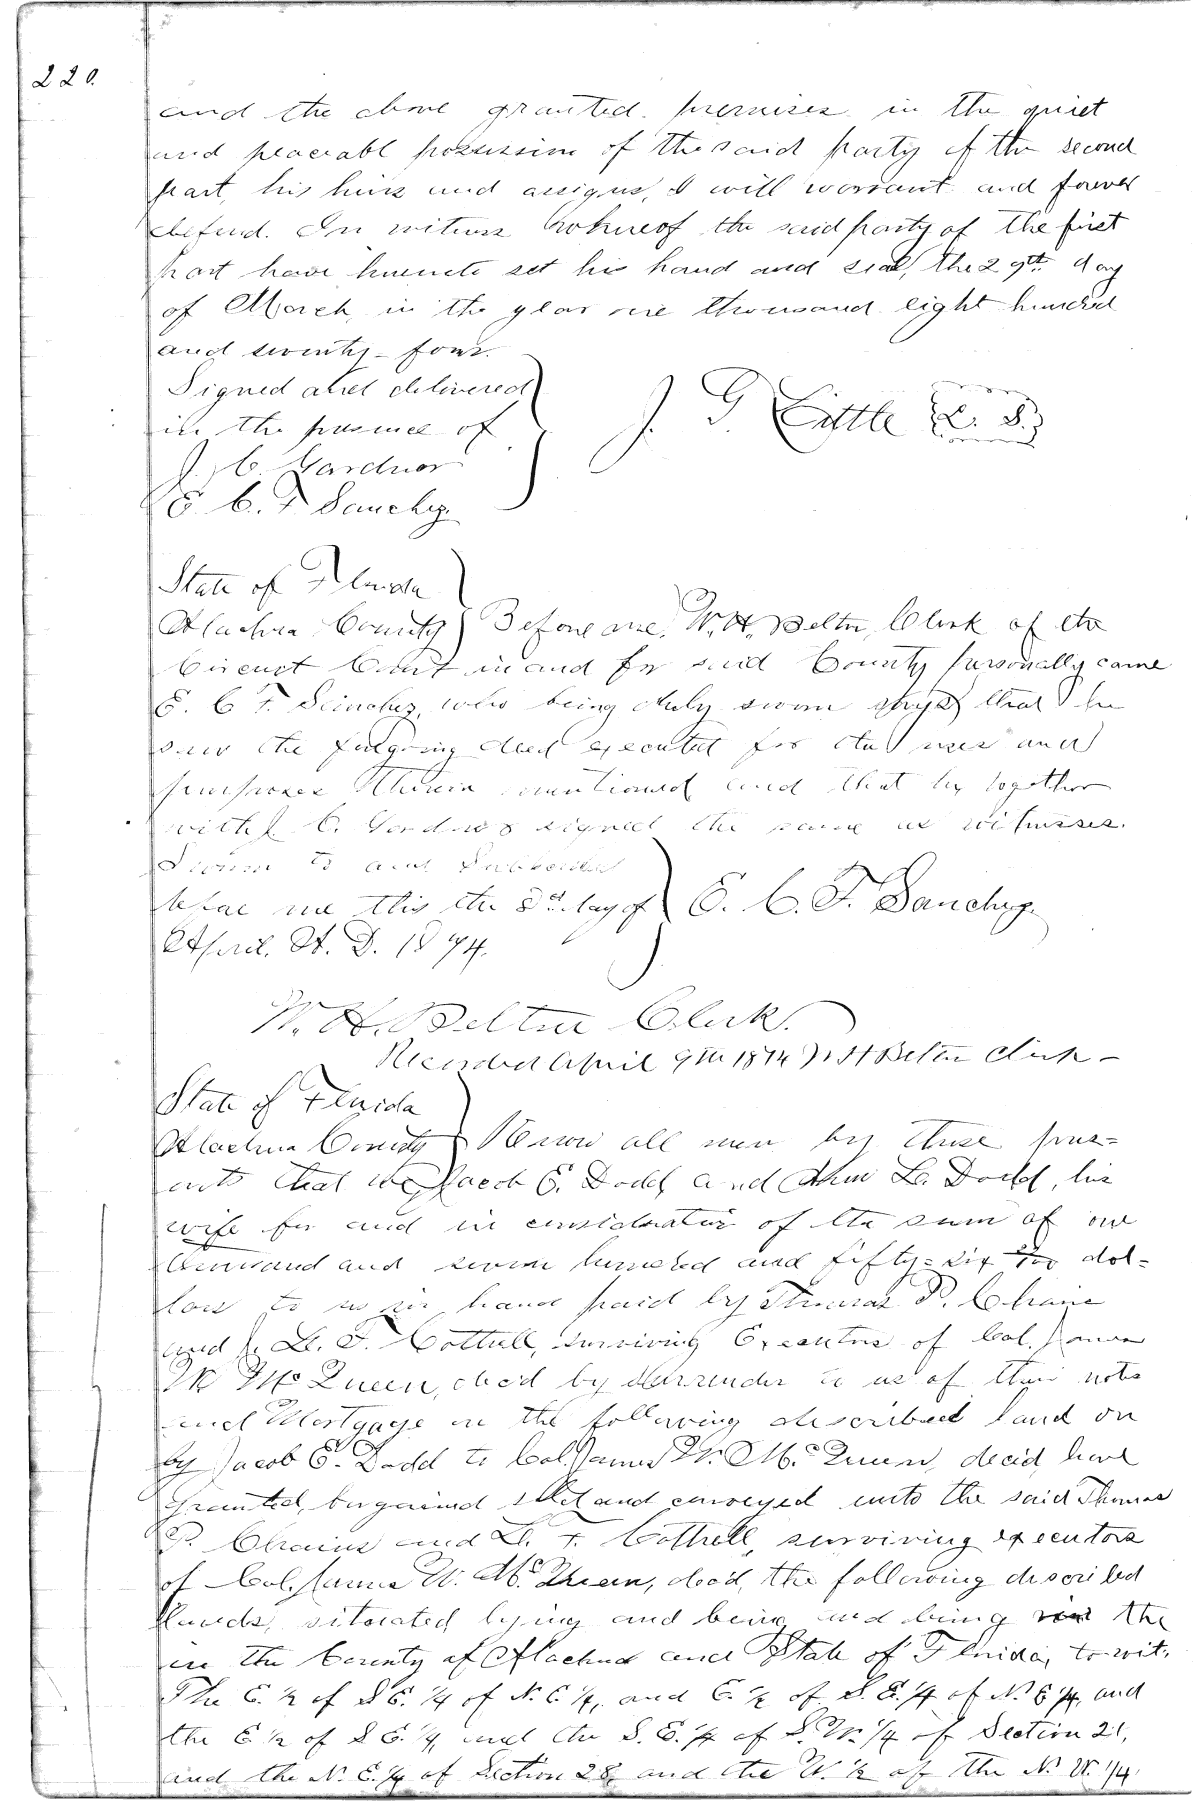 220.
and the above granted premises in the quiet
and peaceabl possession of the said party of the second
part, his heirs and assigns, I will warrant and forever
defend. In witness whereof the said party of the first
part have hereunto set his hand and seal, the 29th day
of March, in the year one thousand eight hundred
and seventy-four.
Signed and delivered
in the presence of
J. G. Little L. S.
J. C. Gardner
E. C. F. Sanchez
State of Florida
Alachua County Before me, W. H. Belton, Clerk of the
Circuit Court in and for said County personally came
E. C. F. Sanchez, who being duly sworn says that he
saw the foregoing deed executed for the uses and
purposes therein mentioned and that he together
with J. C. Gardner signed the same as witnesses.
Sworn to and Subscribed
before me this the 3d day of E. C. F. Sanchez
April, A. D. 1874.
W. H. Belton Clerk.
Recorded April 9th 1874 W H Belton Clerk -
State of Florida
Alachua County Know all men by these pres=
ents that we Jacob E. Dodd, and Ann L. Dodd, his
wife for and in consideration of the sum of one
thousand and seven hundred and fifty=six dol=
lars to us in hand paid by Thomas P. Chaires
and J. L. F. Cottrell, surviving Executors of Col. James
W McQueen, dec'd by surrender to us of their note
and Mortgage on the following described land on
by Jacob E. Dodd to Col. James W. McQueen, dec'd, have
granted, bargained sold and conveyed unto the said Thomas
P. Chaires and L. F. Cottrell, surviving executors
of Col. James W. McQueen, dec'd, the following described
lands, situated lying and being and being the
in the County of Alachua and State of Florida, to wit,
The E. 1/2 of S E. 1/4 of N. E. 1/4, and E. 1/2 of S. E. 1/4 of N. E 1/4, and
the E 1/2 of S E. 1/4, and the S. E. 1/4 of S. W. 1/4 of Section 21,
and the N. E. 1/4 of Section 28, and the W. 1/2 of the N. W. 1/4